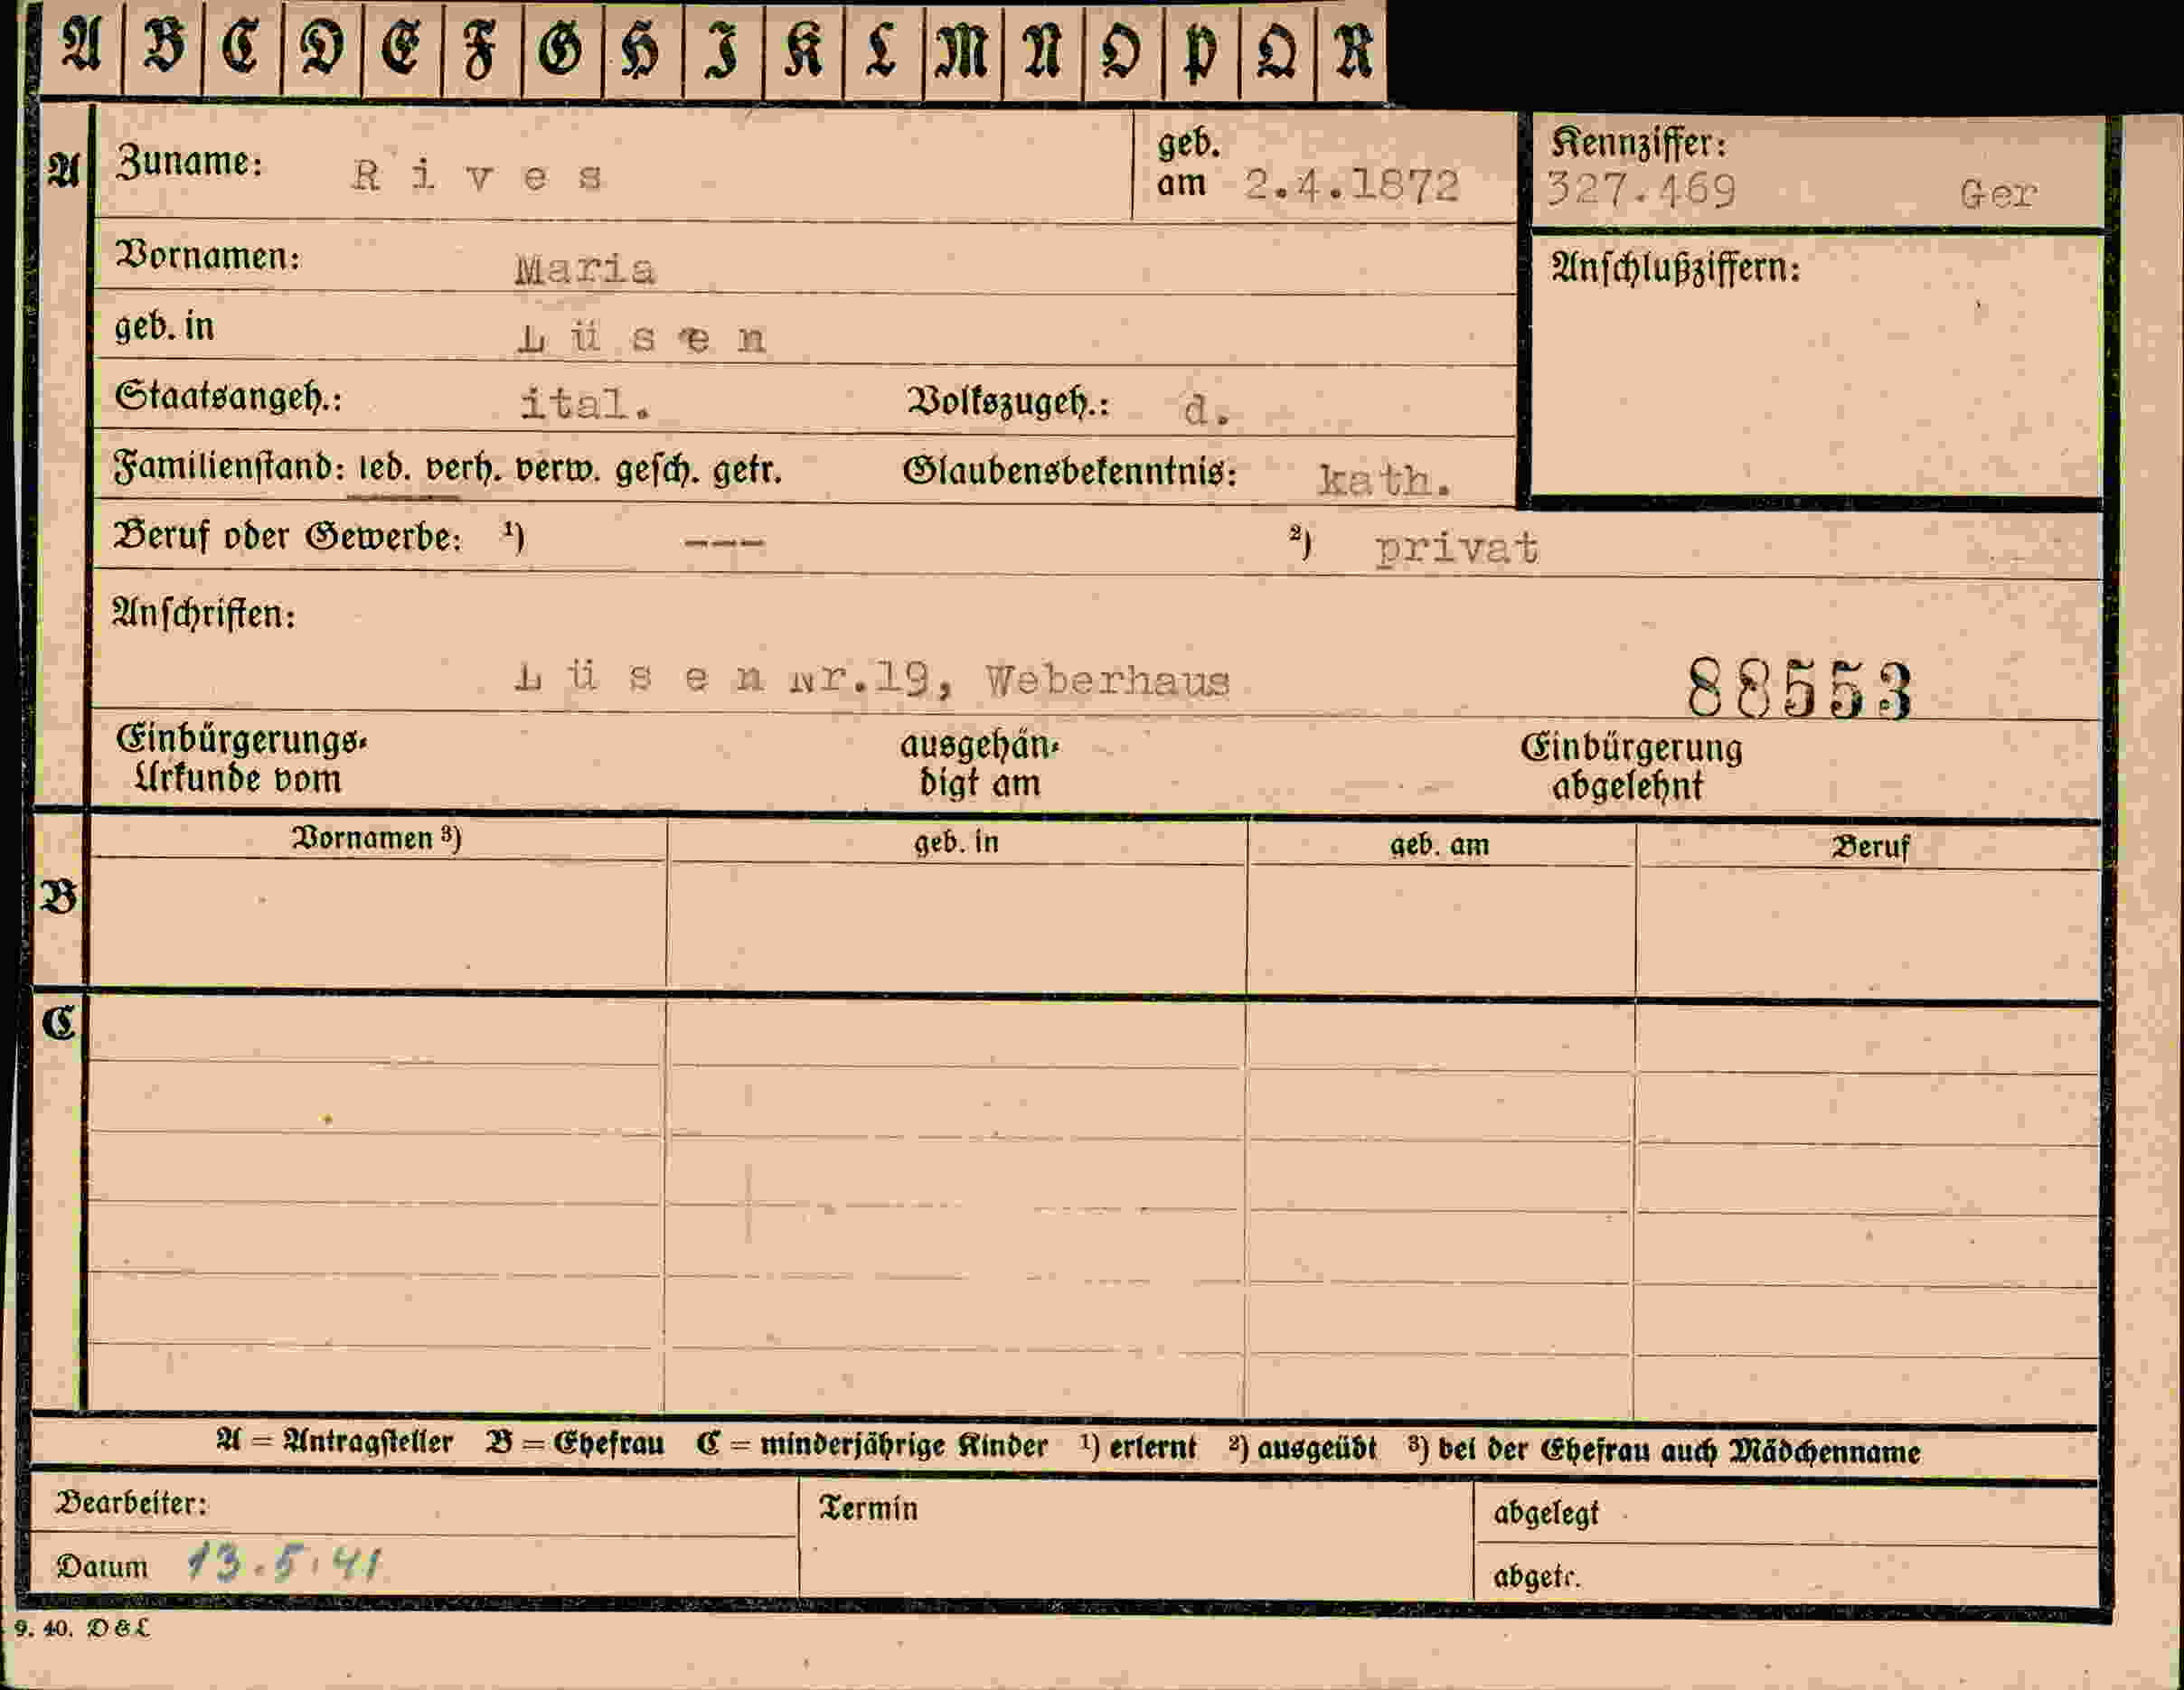 A B C D E F G H I K L M N O P Q R
A Zuname: Rives geb. am 2.4.1872 Kennziffer: 327.469 Ger
Vornamen: Maria Anschlußziffern:
geb. in Lüsen
Staatsangeh.: ital. Volkszugeh.: d.
Familienstand: led. verh. verw. gesch. getr. Glaubensbekenntnis: kath.
Beruf oder Gewerbe: 1) --- 2) privat
Anschriften:
Lüsen Nr.19, Weberhaus 88553
Einbürgerungs- Urkunde vom ausgehän- digt am Einbürgerung abgelehnt
Vornamen 3) geb. in geb. am Beruf
B
C
A = Antragsteller B = Ehefrau C = minderjährige Kinder 1) erlernt 2) ausgeübt 3) bei der Ehefrau auch Mädchenname
Bearbeiter: Termin abgelegt
Datum 13.5.41 abgetr.
9. 40. D & L